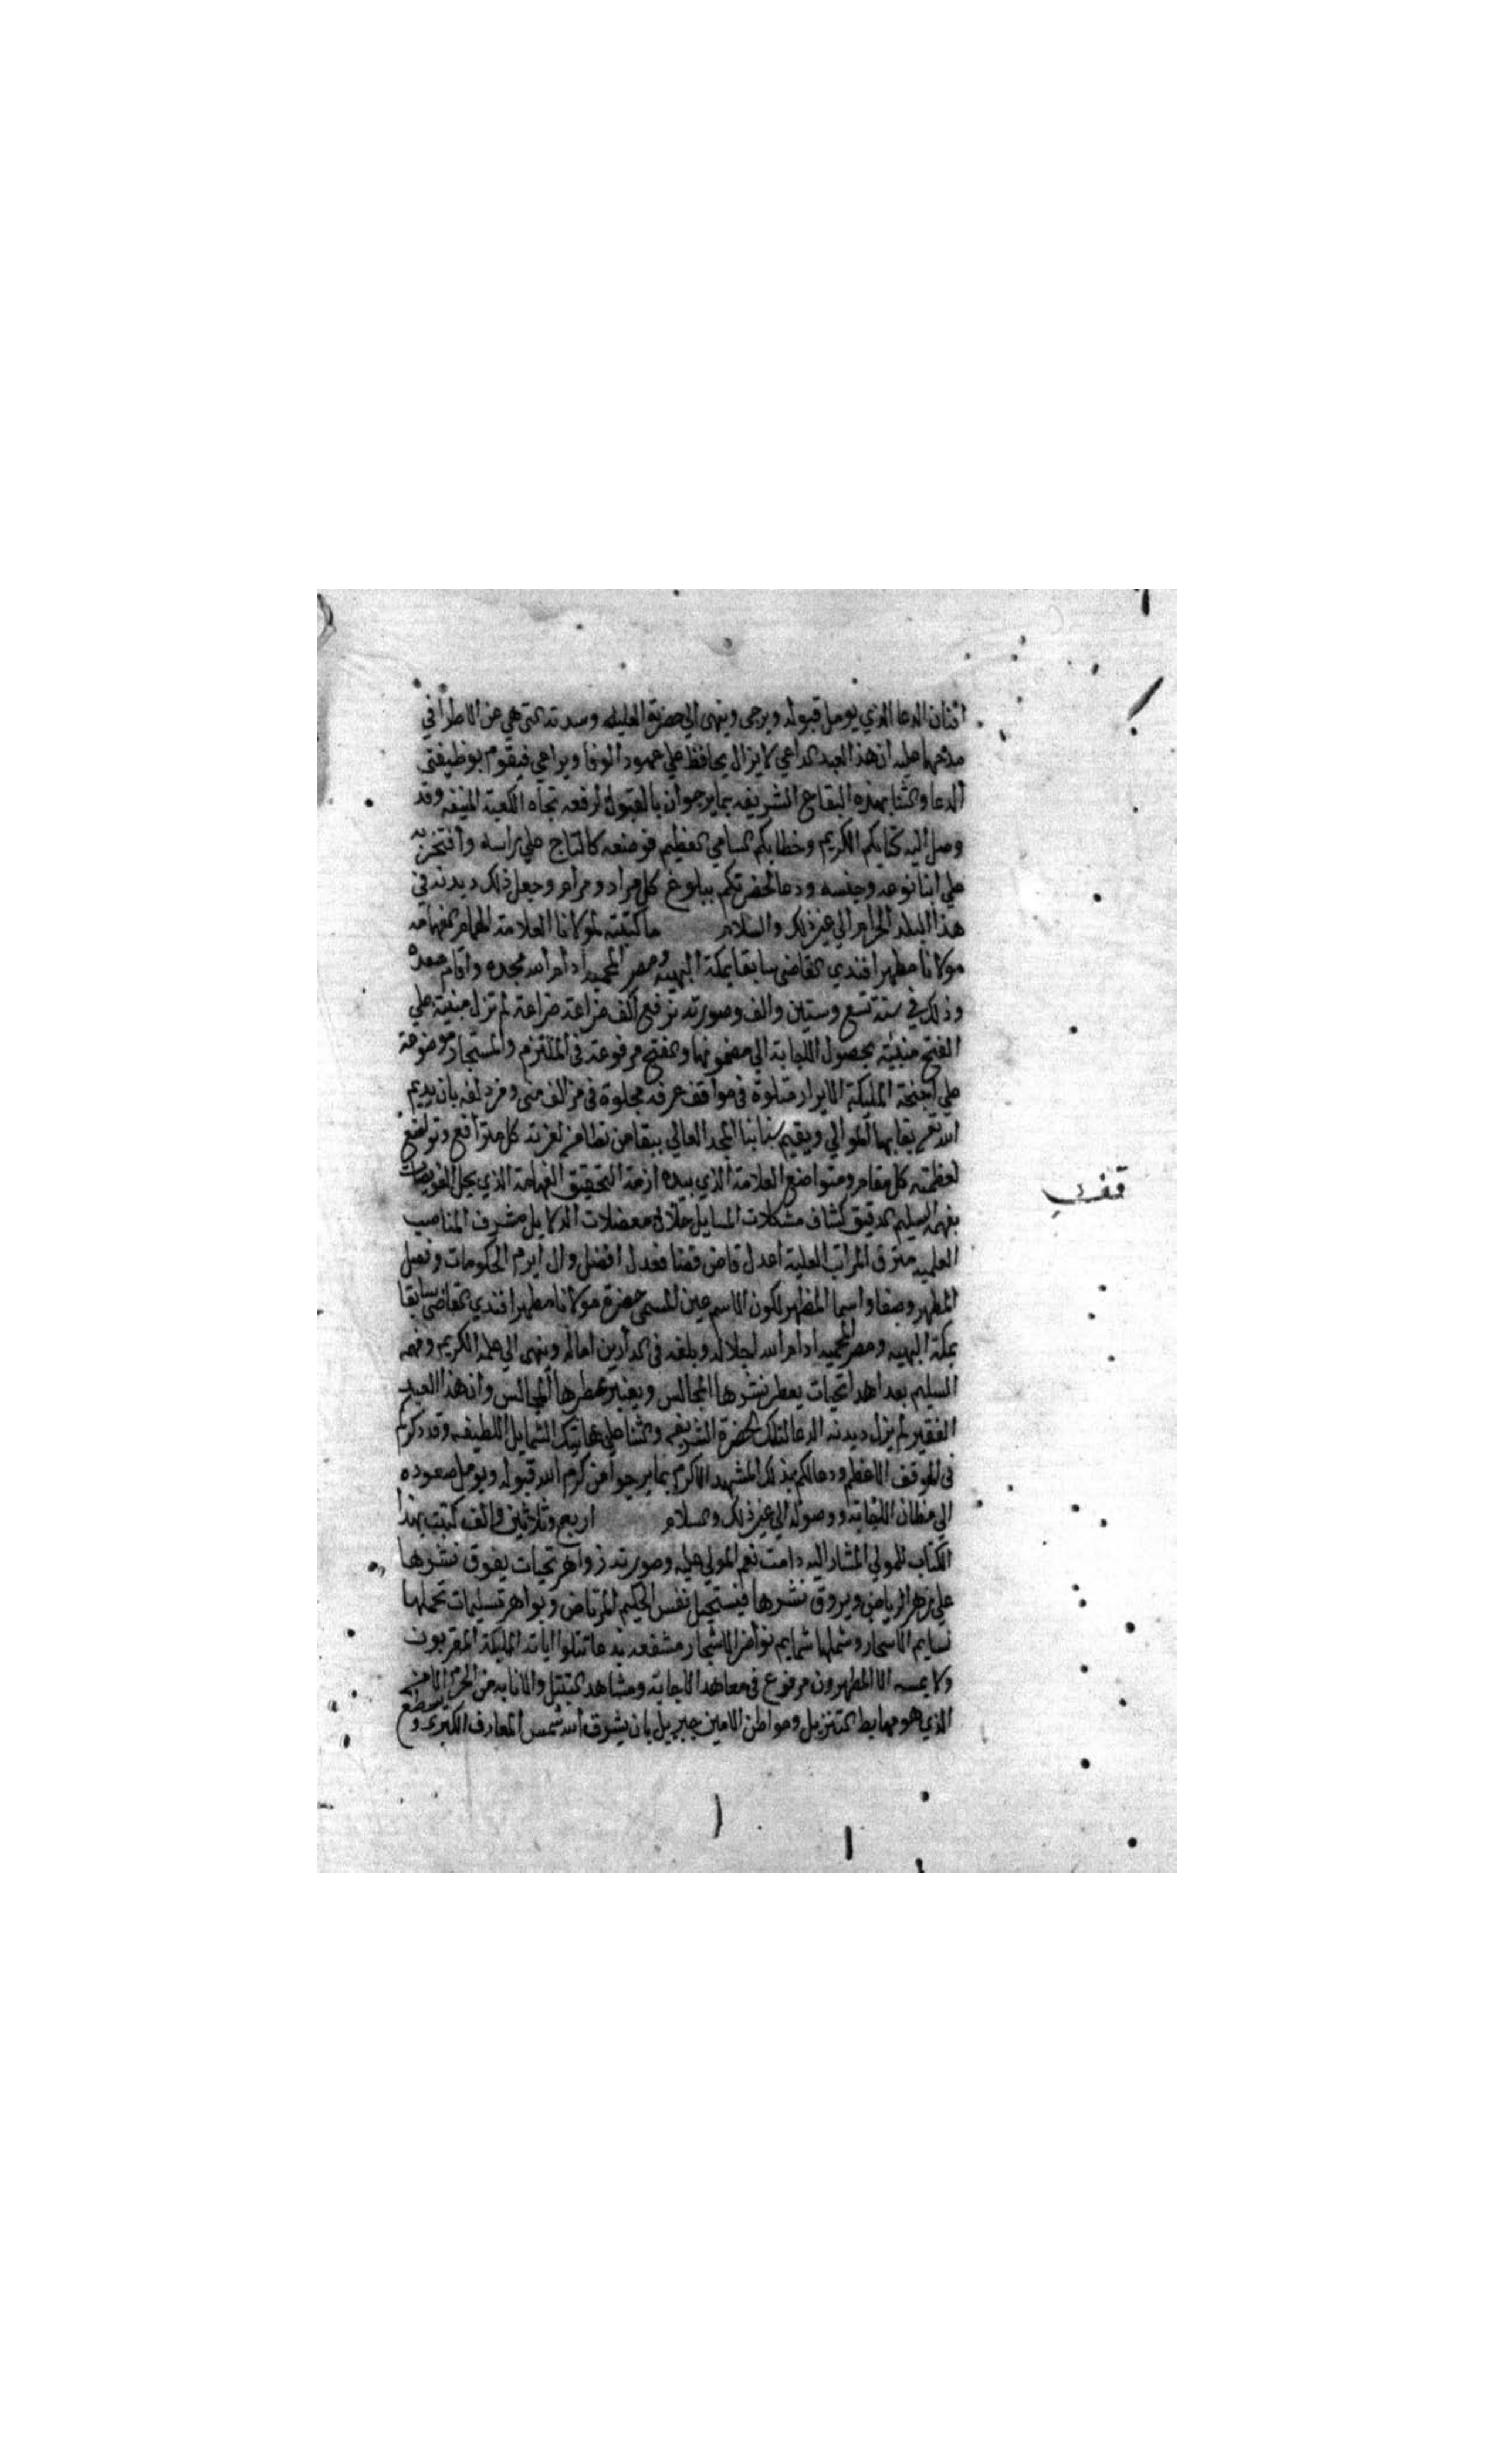 افنان الدعا الذي يومل قبوله ويرجى وينهى الي حضرته العليه وسدته التي هي عن الاطرا في
مدحها عليه ان هذا العبد الداعي لا يزال يحافظ علي عهود الوفا ويراعي فيقوم بوظيفتي
الدعا والثنا بهذه البقاع الشريفه بما يرجو ان بالقبول لرفعه تجاه الكعبة المنيفه وقد
وصل اليه كتابكم الكريم وخطابكم السامي العظيم فوضعه كالتاج علي راسه وافتخر به
علي ابنا نوعه وجنسه ودعا لحضرتكم ببلوغ كل مراد ومرام وجعل ذلك ديدنه في
هذا البلد الحرام الي غير ذلك والسلام ما كتبته لمولانا العلامة الهمام الفهامه
مولانا مطهر افندي القاضي سابقا بمكة البهيه ومصر المحميه ادام الله مجده واقام سعده
وذلك في سنة تسع وستين والف وصورته نرفع اكف ضراعة ضراعة لم تزل مبنية علي
الفتح منبئة بحصول الاجابة الي مضمونها والفتح مرفوعة في الملتزم والمستجار موضوعة
علي اجنحة المليكة الابرار متلوة في مواقف عرفه مجلوة في مزالف منى ومزدلفه بان يديم
الله بقا بها الموالي ويقيم سنا بنا المجد العالي ببقا من تطاهر لعزته كل مترافع وتواضع
لعظمته كل مقام ومتواضع العلامة الذي بيده ازمة التحقيق الفهامة الذي يحل العويصات
بفهمه السليم الدقيق كشاف مشكلات المسايل حلال معضلات الدلايل مشرف المناصب
العلميه مترقي المراتب العلية اعدل قاض قضا فعدل افضل وال ابرم الحكومات وفصل
المطهر وصفا واسما المظهر لكون الاسم عين المسمى حضرة مولانا مطهر افندي القاضي سابقا
بمكة البهيه ومصر المحميه ادام الله اجلاله وبلغه في الدارين اماله وينهى الي علمه الكريم وفهمه
السليم بعد اهدا تحيات يعطر نشرها المجالس ويعنبر عطرها المجالس وان هذا العبد
الفقير لم يزل ديدنه الدعا لتلك الحضرة الشريفه والثنا علي هاتيك الشمايل اللطيفه وقد ذكركم
في الموقف الاعظم ودعا لكم بذلك المشهد الاكرم بما يرجوا من كرم الله قبوله ويومل صعوده
الي مظان الاجابه ووصوله الي غير ذلك والسلام اربع وثلاثين والف كتبت بهذا
الكتاب للمولي المشار اليه دامت نعم المولي عليه وصورته زواهر تحيات يفوق نشرها
علي زهر الرياض ويروق نشرها فيستحيل نفس الحكيم المرتاض وبواهر تسليمات تحملها
نسايم الاسحار وشملها شمايم نواضر الاشجار مشفعه بدعا تتلوا اياته المليكة المقربون
ولا يمسه الا المطهرون مرفوع في معاهد الاجابة ومشاهد التبتل والانابه من الحرم الامن
الذي هو مهابط التنزيل ومواطن الامين جبريل بان يشرق الله شمس المعارف الكبرى ومطلع
قف